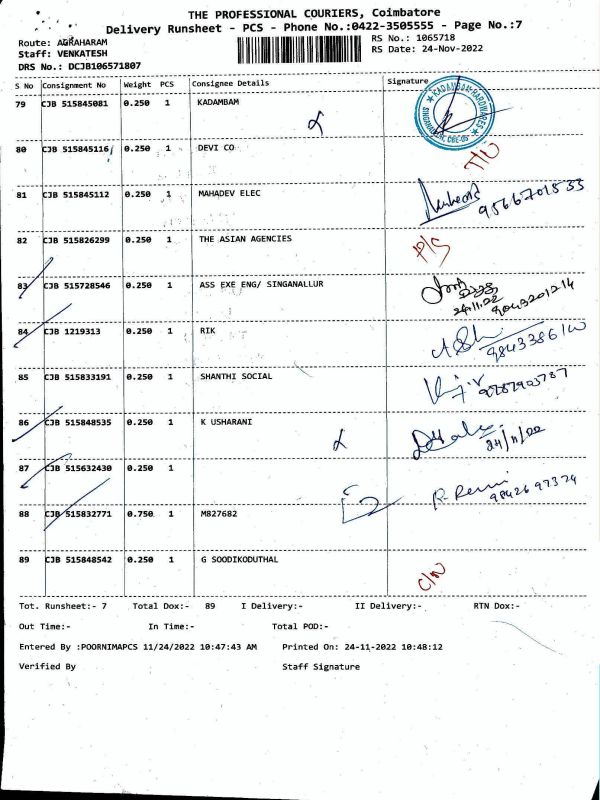 THE PROFESSIONAL COURIERS, Coimbatore
Delivery Runsheet - PCS - Phone No.:0422-3505555 - Page No.:7
Route: AGRAHARAM
RS No.: 1065718
Staff: VENKATESH
RS Date: 24-Nov-2022
DRS No.: DCJB106571807
S No Consignment No Weight PCS Consignee Details Signature
79 CJB 515845081 0.250 1 KADAMBAM
KADAMBAM HARDWARES
80 CJB 515845116 0.250 1 DEVI CO
81 CJB 515845112 0.250 1 MAHADEV ELEC
9566701533
82 CJB 515826299 0.250 1 THE ASIAN AGENCIES
83 CJB 515728546 0.250 1 ASS EXE ENG/ SINGANALLUR
24.11.22
9043201214
84 CJB 1219313 0.250 1 RIK
85 CJB 515833191 0.250 1 SHANTHI SOCIAL
86 CJB 515848535 0.250 1 K USHARANI
24/11/22
87 CJB 515632430 0.250 1
88 CJB 515832771 0.750 1 M827682
89 CJB 515848542 0.250 1 G SOODIKODUTHAL
Tot. Runsheet:- 7 Total Dox:- 89 I Delivery:- II Delivery:- RTN Dox:-
Out Time:- In Time:- Total POD:-
Entered By :POORNIMAPCS 11/24/2022 10:47:43 AM Printed On: 24-11-2022 10:48:12
Verified By Staff Signature